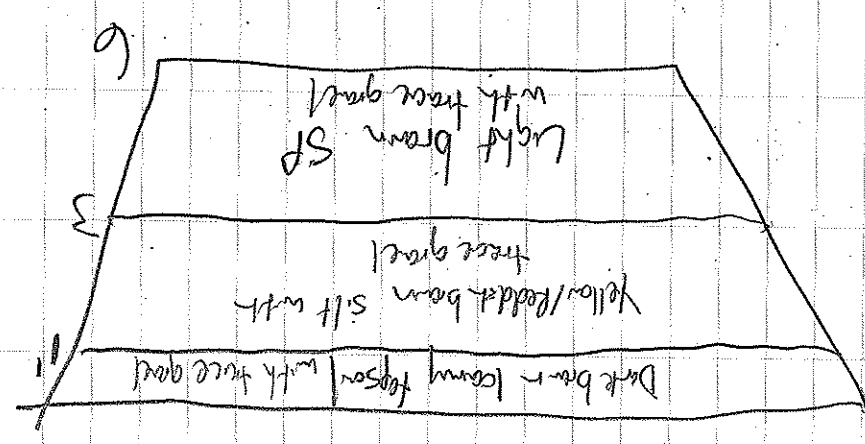 Dark brown loamy topsoil with trace gravel
1'
Yellow/Reddish brown silt with
trace gravel
3
Light brown SP
with trace gravel
6